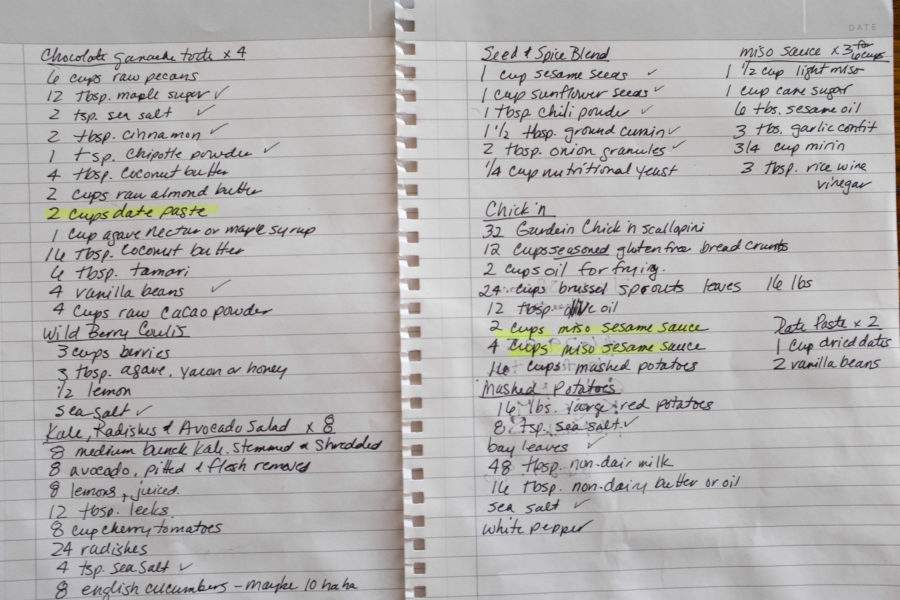 Chocolate ganache torte x 4
6 cups raw pecans
12 tbsp. maple sugar ✓
2 tsp. sea salt ✓
2 tbsp. cinnamon ✓
1 tsp. chipotle powder ✓
4 tbsp. coconut butter
2 cups raw almond butter
2 cups date paste
1 cup agave nectar or maple syrup
16 tbsp. coconut butter
6 tbsp. tamari
4 vanilla beans ✓
4 cups raw cacao powder
Wild Berry Coulis
3 cups berries
3 tbsp. agave, yacon or honey
1/2 lemon
sea salt ✓
Kale, Radishes & Avocado Salad x 8
8 medium bunch kale, stemmed & shredded
8 avocado, pitted & flesh removed
8 lemons, juiced
12 tbsp. leeks
8 cup cherry tomatoes
24 radishes
4 tsp. sea salt ✓
8 english cucumbers - maybe 10 haha
DATE
Seed & Spice Blend
1 cup sesame seeds ✓
1 cup sunflower seeds ✓
1 tbsp chili powder ✓
1 1/2 tbsp. ground cumin ✓
2 tbsp. onion granules ✓
1/4 cup nutritional yeast
miso sauce x 3 for 6 cups
1 1/2 cup light miso
1 cup cane sugar
6 tbs. sesame oil
3 tbs. garlic confit
3/4 cup mirin
3 tbsp. rice wine
vinegar
Chick'n
32 Gardein Chick'n scallapini
12 cups seasoned gluten free bread crumbs
2 cups oil for frying.
24 cups brussel sprouts leaves 16 lbs
12 tbsp. olive oil
2 cups miso sesame sauce
4 cups miso sesame sauce
16 cups mashed potatoes
Date Paste x 2
1 cup dried dates
2 vanilla beans
Mashed Potatoes
16 lbs. large red potatoes
8 tsp. sea salt ✓
bay leaves ✓
48 tbsp. non-dair milk
16 tbsp. non-dairy butter or oil
sea salt ✓
white pepper